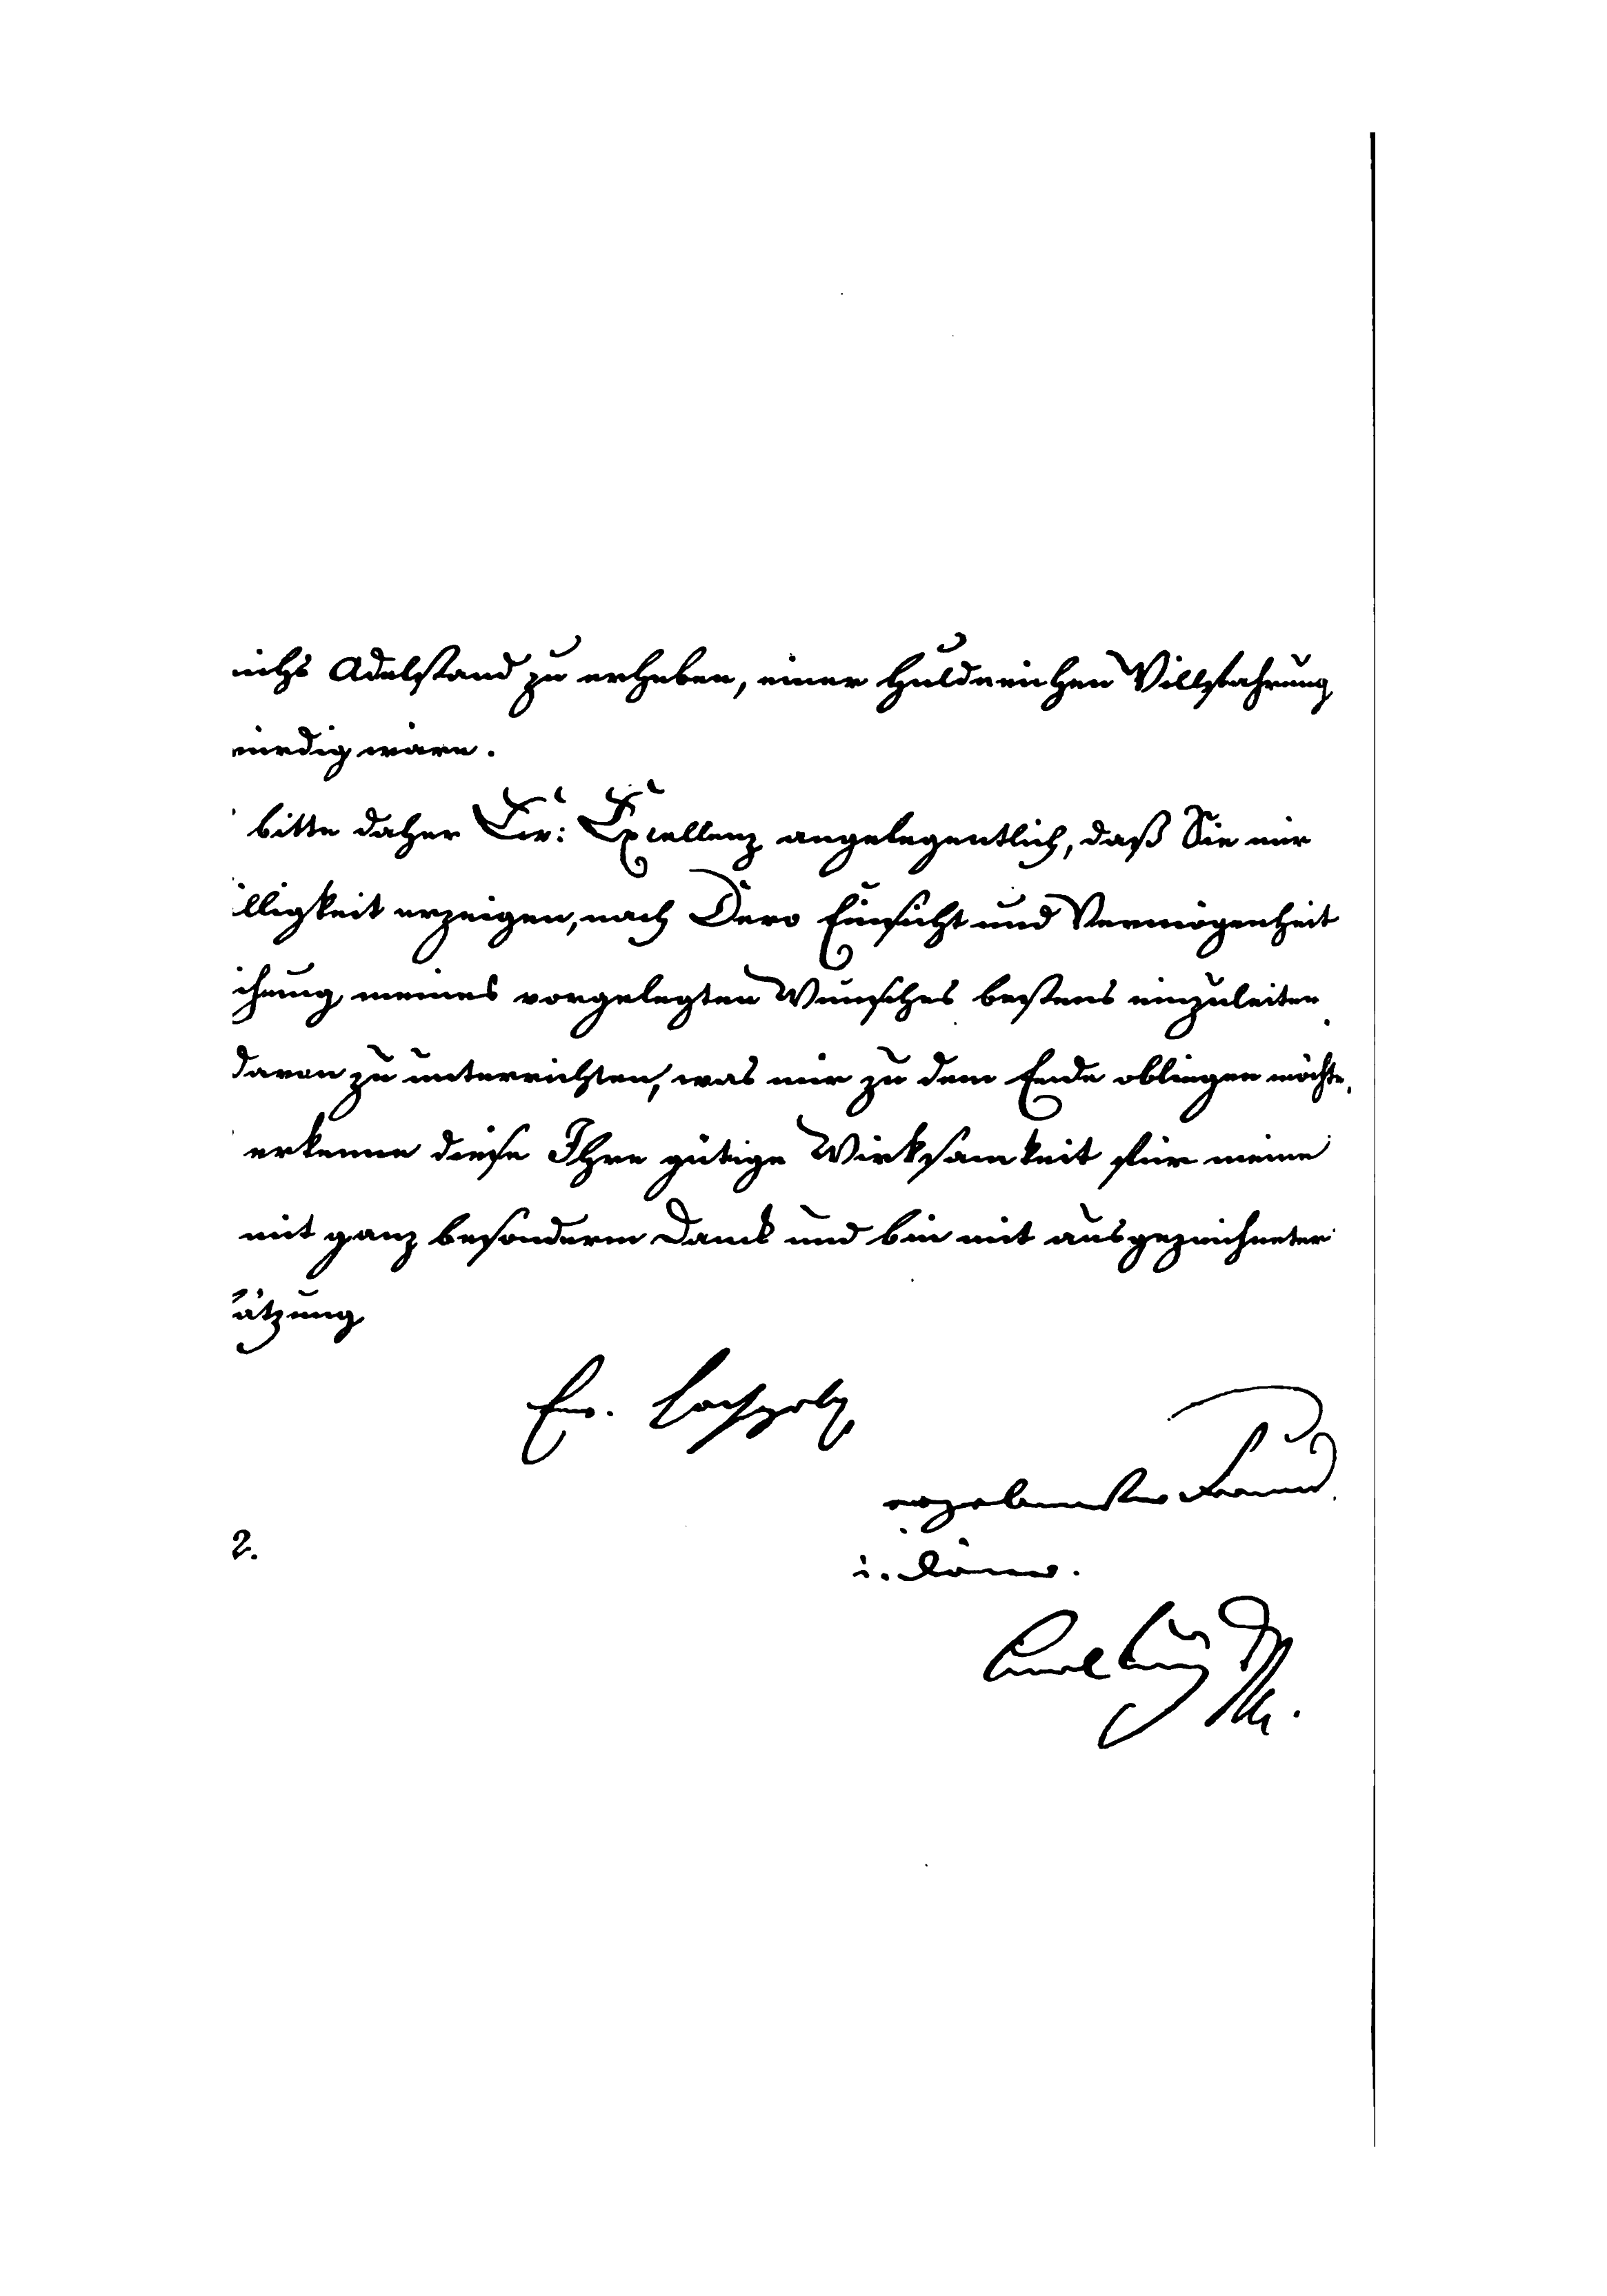 ichs Adelstand zu erheben, einer huldreichen Willfahrung
würdig wäre.
bitte daher Ew: Excellenz angelegentlich, daß Sie mir
illigkeit erzeigen, nach Dero Einsicht und Vermögenheit
ichung meines vorgelegten Wunsches bestens einzuleiten
davon zu unterrichten, was mir zu dem Ende obliegen möchte,
erkenne diese Ihre gütige Wirksamkeit für meine
mit ganz besonderm Danck und bin mit ausgezeichneter
ätzung
Ew.
ergebenster Freund
2.
u. Diener.